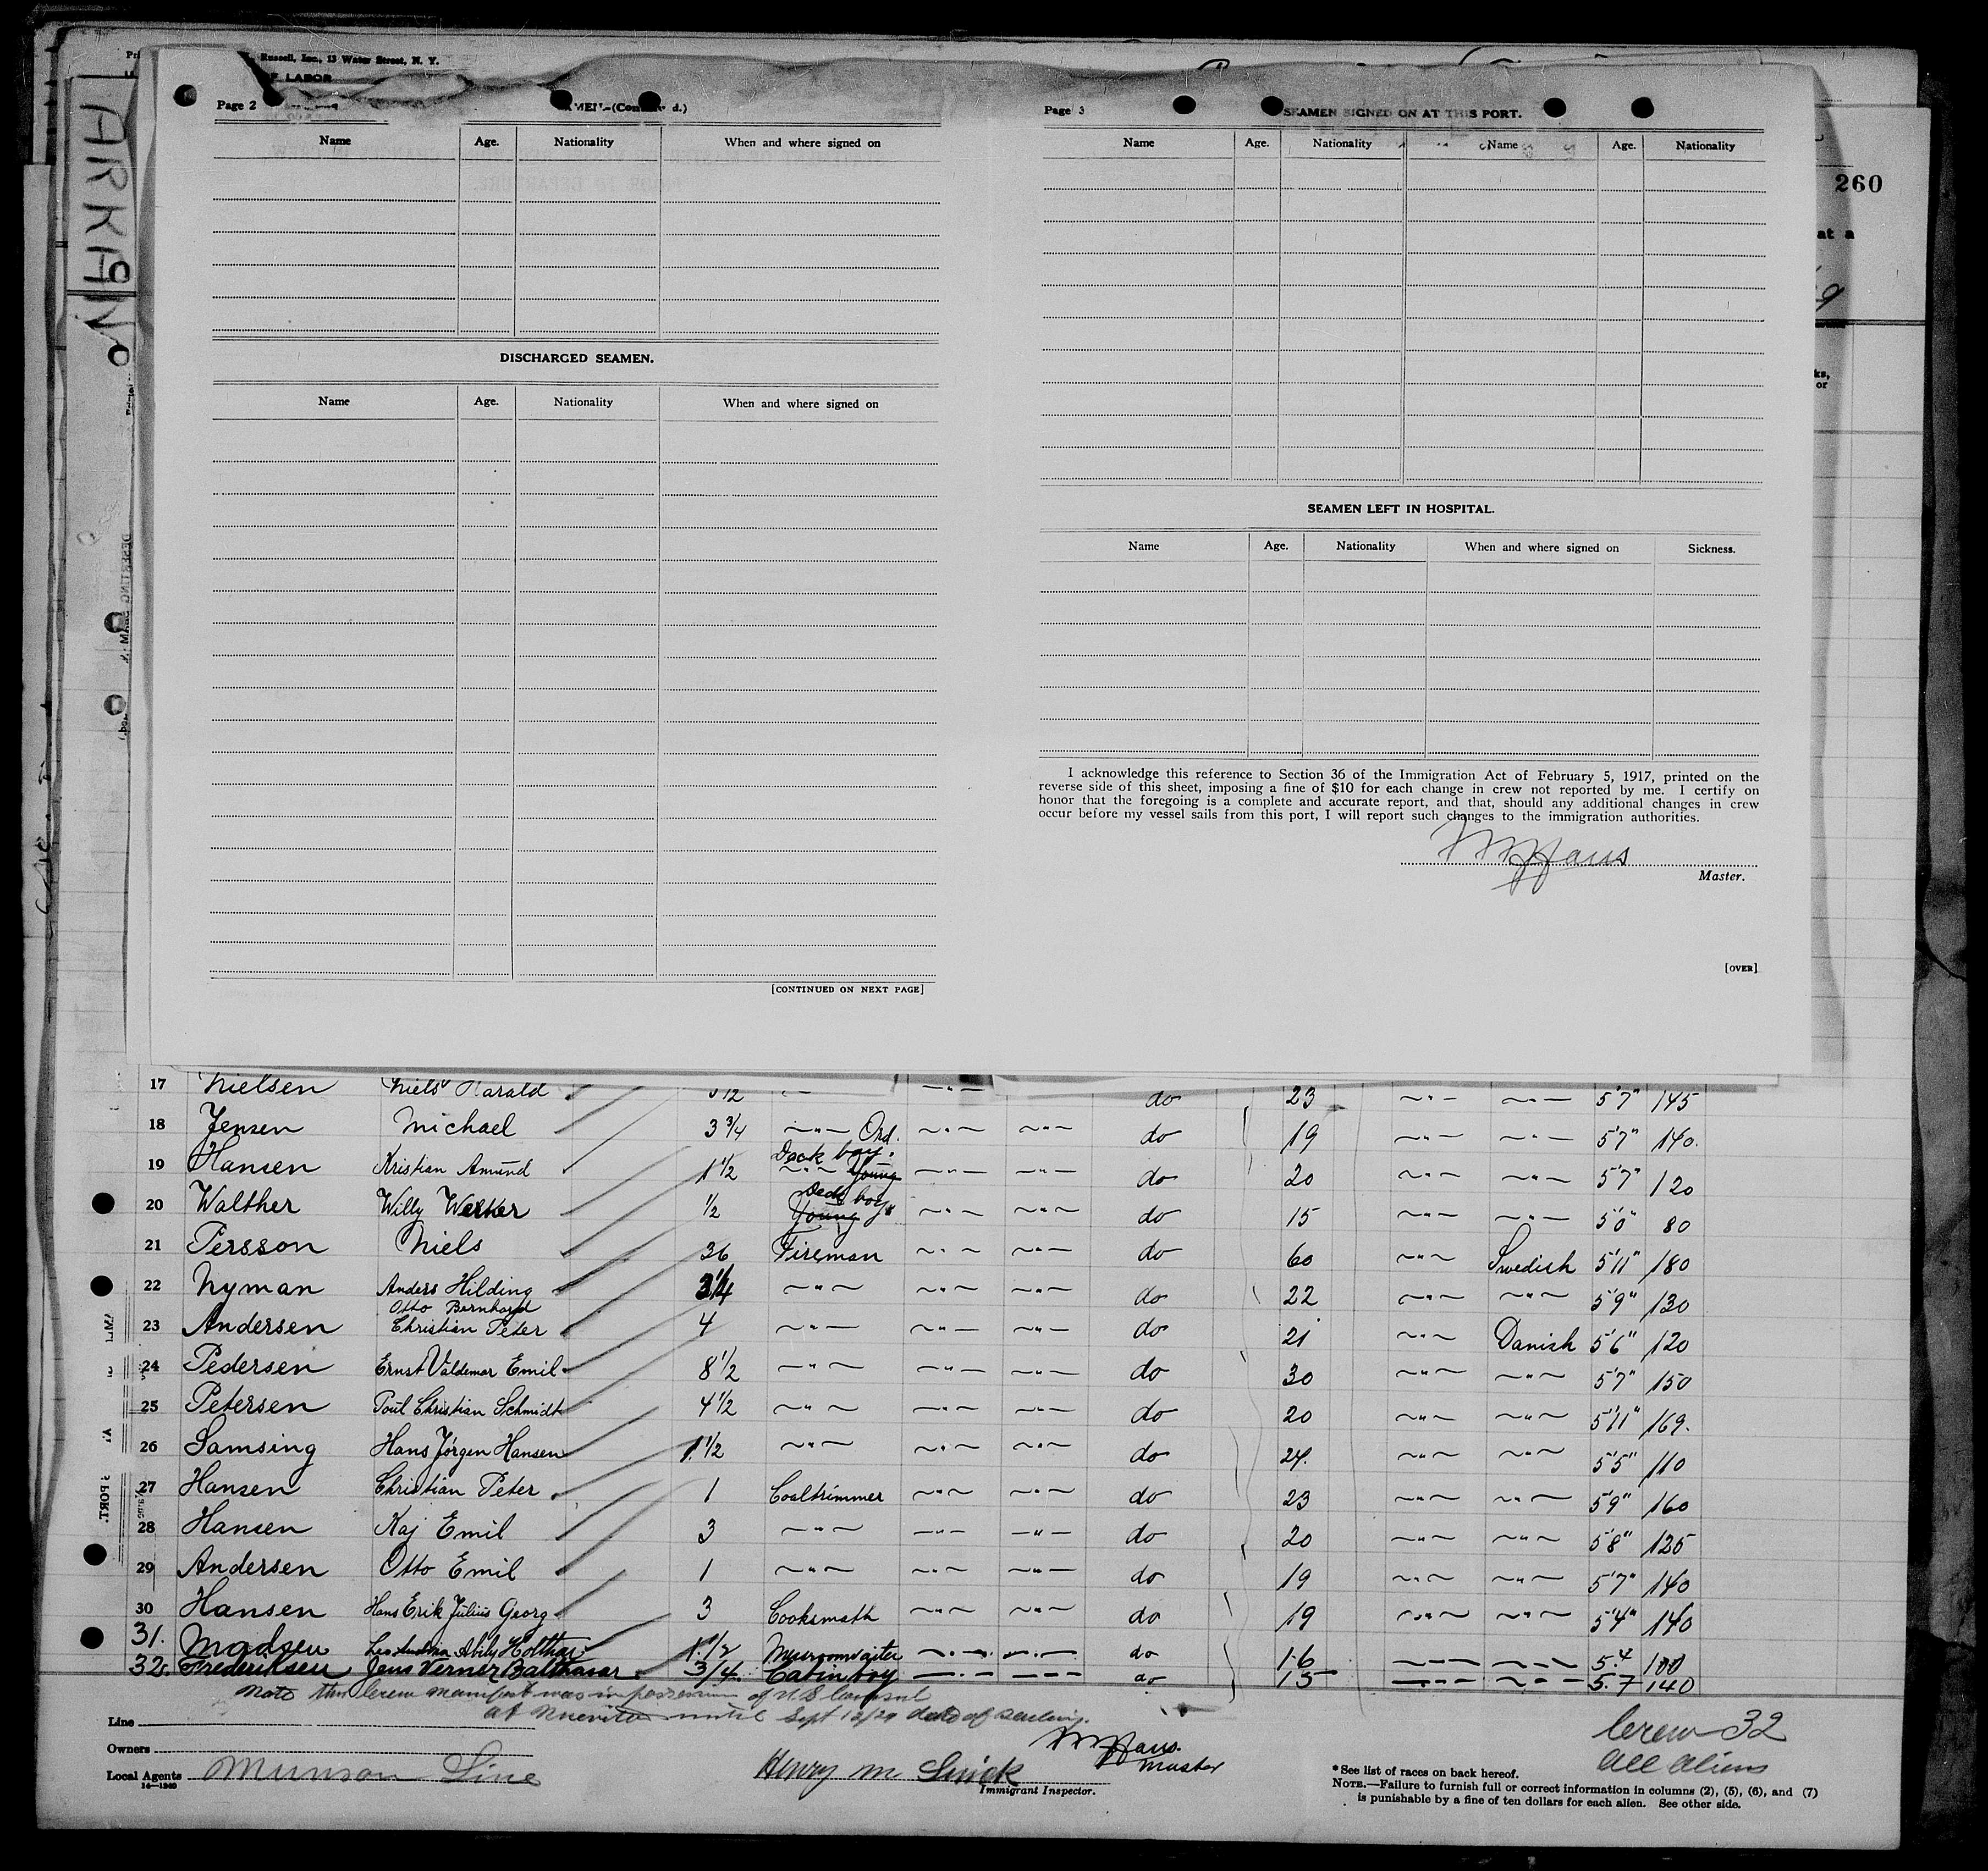 Russell, Inc., 13 Water Street, N. Y.
F LABOR
ARKAN
260
at a
9
ks,
or
Page 2
Name Age. Nationality When and where signed on
DISCHARGED SEAMEN.
Name Age. Nationality When and where signed on
[CONTINUED ON NEXT PAGE]
Page 3
SEAMEN SIGNED ON AT THIS PORT.
Name Age. Nationality Name Age. Nationality
SEAMEN LEFT IN HOSPITAL.
Name Age. Nationality When and where signed on Sickness.
I acknowledge this reference to Section 36 of the Immigration Act of February 5, 1917, printed on the
reverse side of this sheet, imposing a fine of $10 for each change in crew not reported by me. I certify on
honor that the foregoing is a complete and accurate report, and that, should any additional changes in crew
occur before my vessel sails from this port, I will report such changes to the immigration authorities.
Master.
[OVER]
17 Nielsen Niels Harald 1/2 —"— do 23 —"— —"— 5'7" 145
18 Jensen Michael 3 3/4 —"— Ord. —"— —"— do 19 —"— —"— 5'7" 140.
Deck boy.
19 Hansen Kristian Amund 1 1/2 —"— Young —"— —"— do 20 —"— —"— 5'7" 120
Deck boy
20 Walther Willy Werner 1/2 Young —"— —"— do 15 —"— —"— 5'0" 80
21 Persson Niels 36 Fireman —"— —"— do 60 —"— Swedish 5'11" 180
22 Nyman Anders Hilding 3 1/4 —"— —"— —"— do 22 —"— —"— 5'9" 130
Otto Bernhard
23 Andersen Christian Peter 4 —"— —"— —"— do 21 —"— Danish 5'6" 120
24 Pedersen Ernst Valdemar Emil 8 1/2 —"— —"— —"— do 30 —"— —"— 5'7" 150
25 Petersen Poul Christian Schmidt 4 1/2 —"— —"— —"— do 20 —"— —"— 5'11" 169.
26 Samsing Hans Jörgen Hansen 1 1/2 —"— —"— —"— do 24. —"— —"— 5'5" 110
27 Hansen Christian Peter 1 Coaltrimmer —"— —"— do 23 —"— —"— 5'9" 160
28 Hansen Kaj Emil 3 —"— —"— —"— do 20 —"— —"— 5'8" 125
29 Andersen Otto Emil 1 —"— —"— —"— do 19 —"— —"— 5'7" 140
30 Hansen Hans Erik Julius Georg 3 Cooksmath —"— —"— do 19 —"— —"— 5'4" 140
31. Madsen Holthar 1 1/2 Messroomwaiter —"— —"— do 16 —"— —"— 5.4 100
32. Frederiksen Jens Verner Balthasar 3/4 Cabinboy —"— —"— do 15 —"— —"— 5.7 140
Note this Crew manifest was in possession of U S Consul
at Nuevitas until Sept 12/29 date of sailing.
Line
Owners
Local Agents Munson Line
14—1240
Master
Henry M.
Immigrant Inspector.
Crew 32
All aliens
* See list of races on back hereof.
NOTE.—Failure to furnish full or correct information in columns (2), (5), (6), and (7)
is punishable by a fine of ten dollars for each alien. See other side.